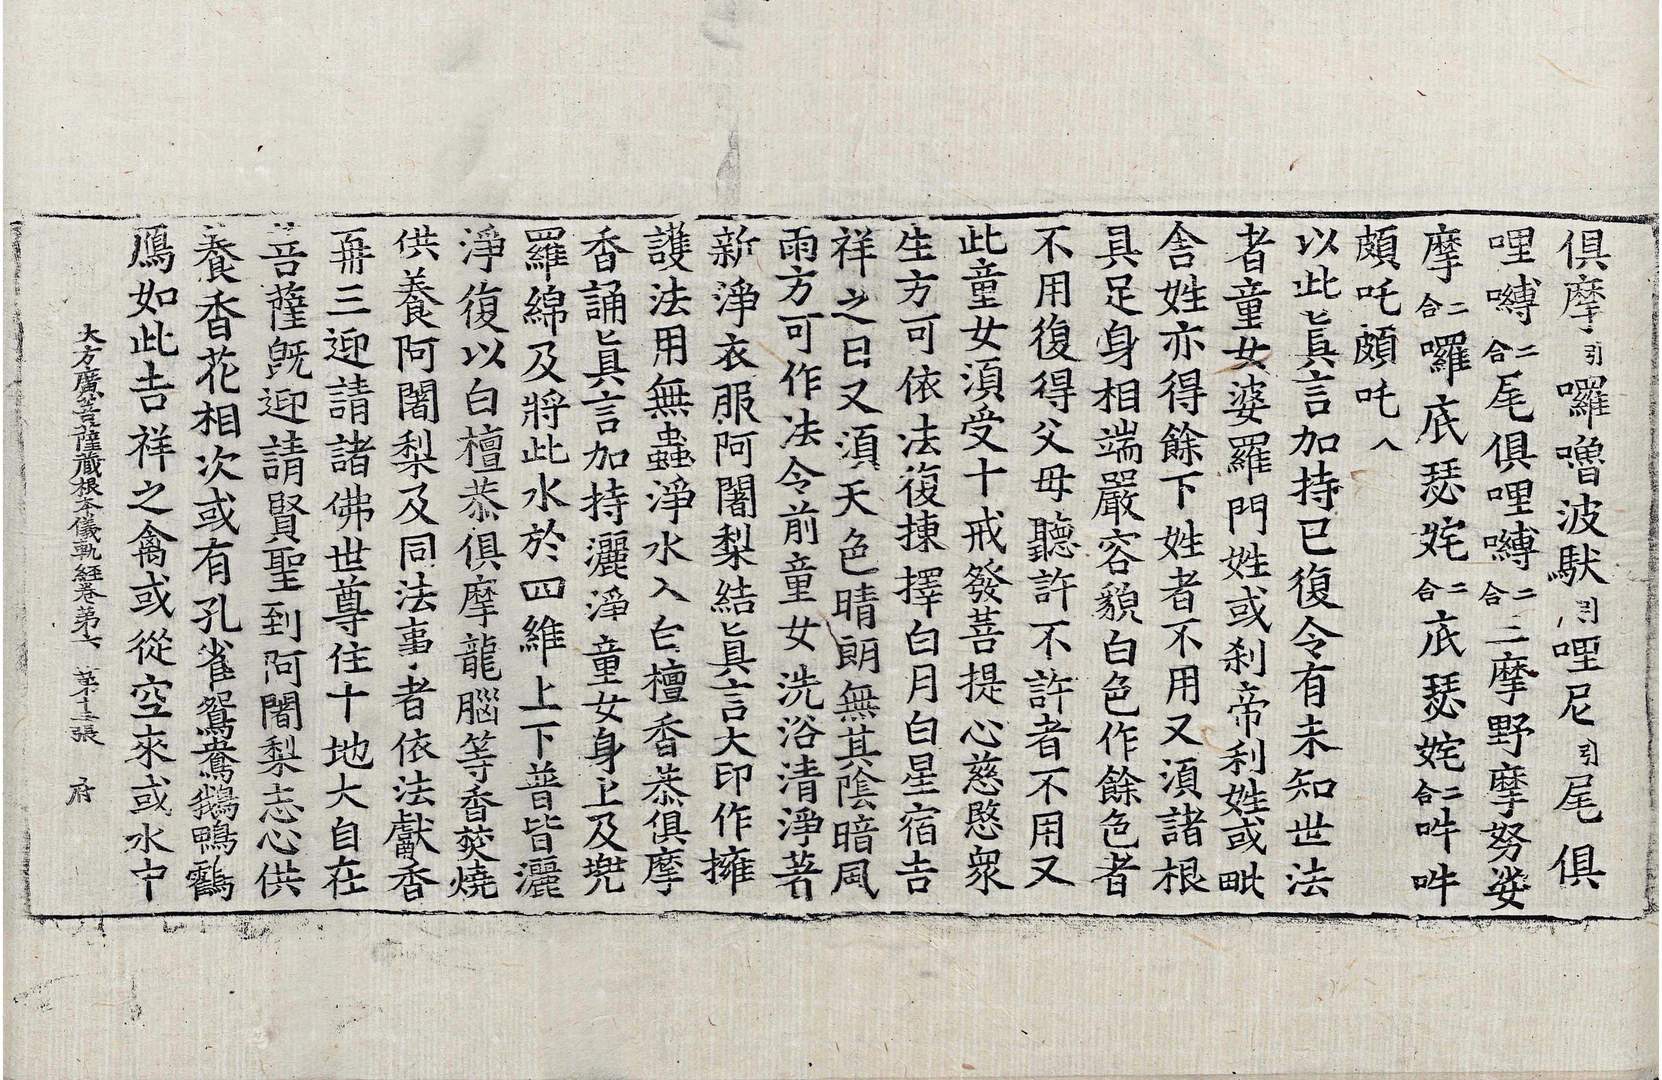 俱摩引囉嚕波馱引哩尼引尾俱
哩嚩二合尾俱哩嚩二合三摩野摩努娑
摩二合囉底瑟姹二合底瑟姹二合吽吽
頗吒頗吒八
以此真言加持已復令有未知世法
者童女婆羅門姓或刹帝利姓或毗
舍姓亦得餘下姓者不用又須諸根
具足身相端嚴容貌白色作餘色者
不用復得父母聽許不許者不用又
此童女須受十戒發菩提心慈愍衆
生方可依法復揀擇白月白星宿吉
祥之日又須天色晴朗無其陰暗風
雨方可作法令前童女洗浴清淨著
新淨衣服阿闍梨結真言大印作擁
護法用無蟲淨水入白檀香恭俱摩
香誦真言加持灑淨童女身上及兠
羅綿及將此水於四維上下普皆灑
淨復以白檀恭俱摩龍腦等香焚燒
供養阿闍梨及同法事者依法獻香
再三迎請諸佛世尊住十地大自在
菩薩旣迎請賢聖到阿闍梨志心供
養香花相次或有孔雀鴛鴦鵝鴨鸖
鴈如此吉祥之禽或從空來或水中
大方廣菩薩藏根本儀軌経卷第六 第十三張 府